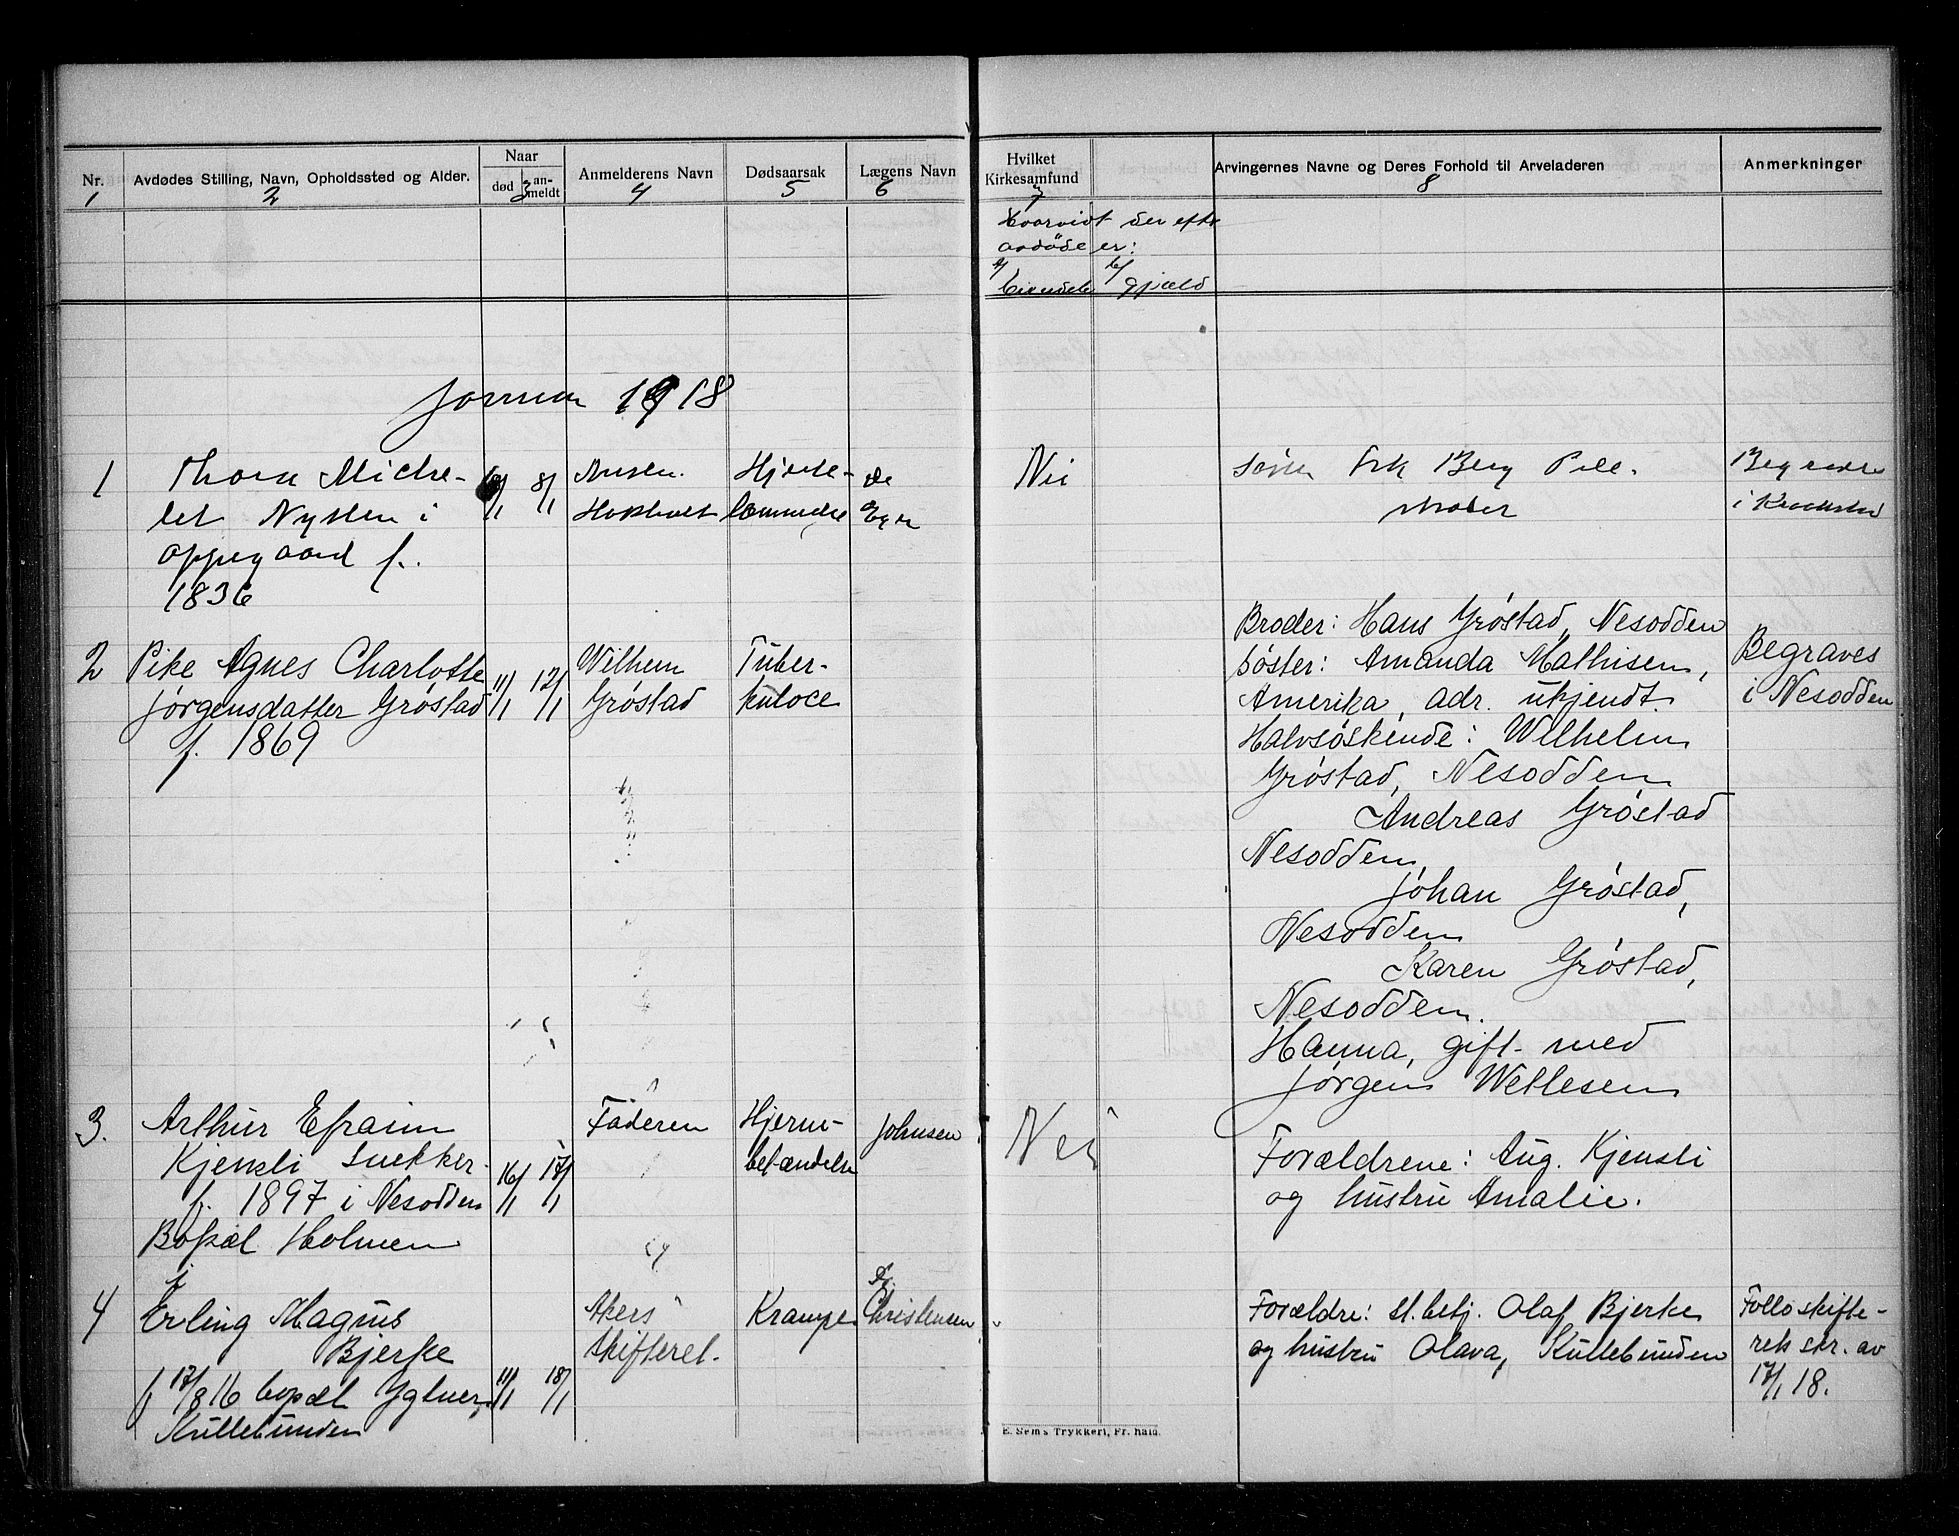 Nr. Avdødes Stilling, Navn, Opholdssted og Alder. Naar død anmeldt Anmelderens Navn Dødsaarsak Lægens Navn Hvilket Kirkesamfund Arvingernes Navne og Deres Forhold til Arveladeren Anmerkninger
1 2 3 4 5 6 7 8
Hvorvidt der efter
avdøde er:
a/ b/
gjæld
Januar 1918
1
Nysten i
oppegaard f.
1836
8/1
Hjerte-
Nei
Berg
i
2
Pike Agnes Charlotte
Jørgensdatter Grøstad
f. 1869
11/1 12/1
Wilhem
Grøstad
Tuber-
kuloce
Broder: Hans Grøstad, Nesodden
Søster: Amanda Mathisen,
Amerika, adr. ukjendt.
Halvsøskende: Wilhelm
Grøstad, Nesodden
Andreas Grøstad
Nesodden,
Johan Grøstad,
Nesodden
Karen Grøstad,
Nesodden.
Hanna, gift med
Jørgen Wetlesen
Begraves
i Nesodden
3.
Arthur Efraim
Kjensli snekker
f. 1897 i Nesodden
Bopæl Holmen
16/1 17/1
Faderen
Hjerne-
betændelse
Johnsen
Nei
Forældrene: Aug. Kjensli
og hustru Amalie.
4
Erling Magnus
Bjerke
f 17/8 16 bopæl
Kullebunden
11/1 18/1
Akers
skifteret.
Krampe
Dr.
Christensen
Forældre: st.betj. Olaf Bjerke
og hustru Olava, Kullebunden
Follo skifte-
rets skr. av
17/1 18.
E. Sem's Trykkeri, Fr.hald.